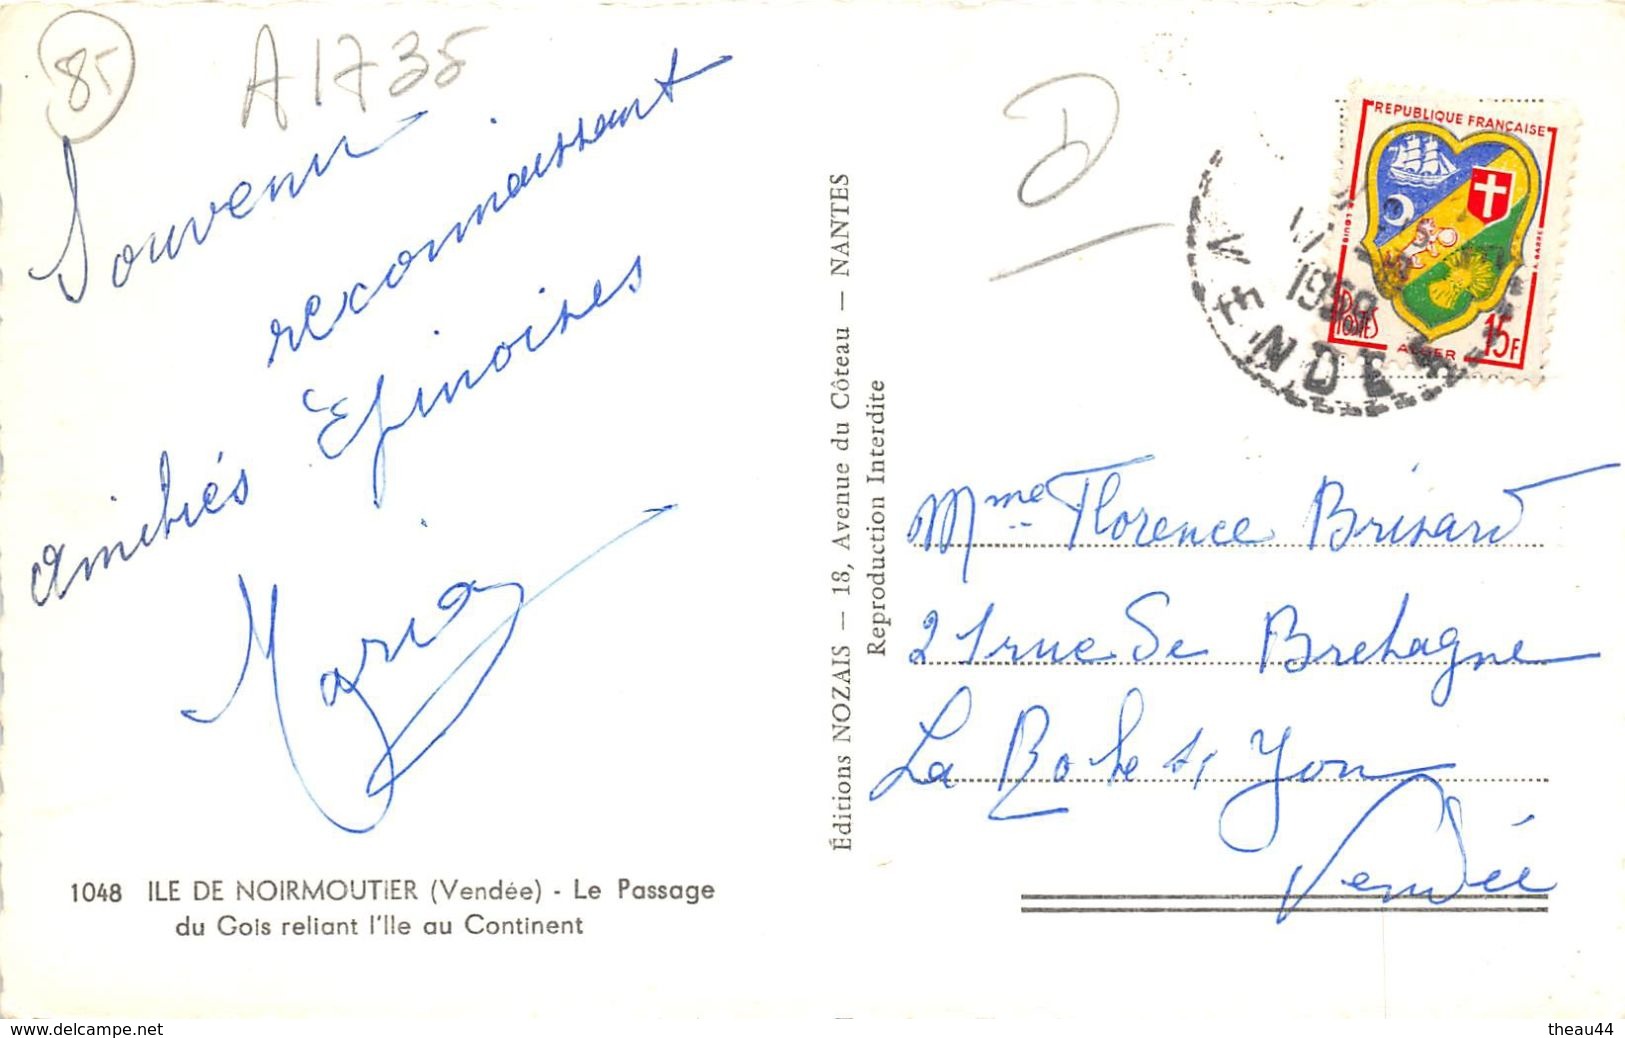 85
A1735
Souvenir
reconnaissant
amitiés Épinoises
Maria
1048 ILE DE NOIRMOUTIER (Vendée) - Le Passage
du Gois reliant l'Ile au Continent
Éditions NOZAIS — 18, Avenue du Côteau — NANTES
Reproduction Interdite
D
REPUBLIQUE FRANÇAISE
POSTES
ALGER
15F
1959
VENDEE
Mme Florence Brisard
21 rue de Bretagne
La Roche s/ Yon
Vendée
www.delcampe.net
theau44